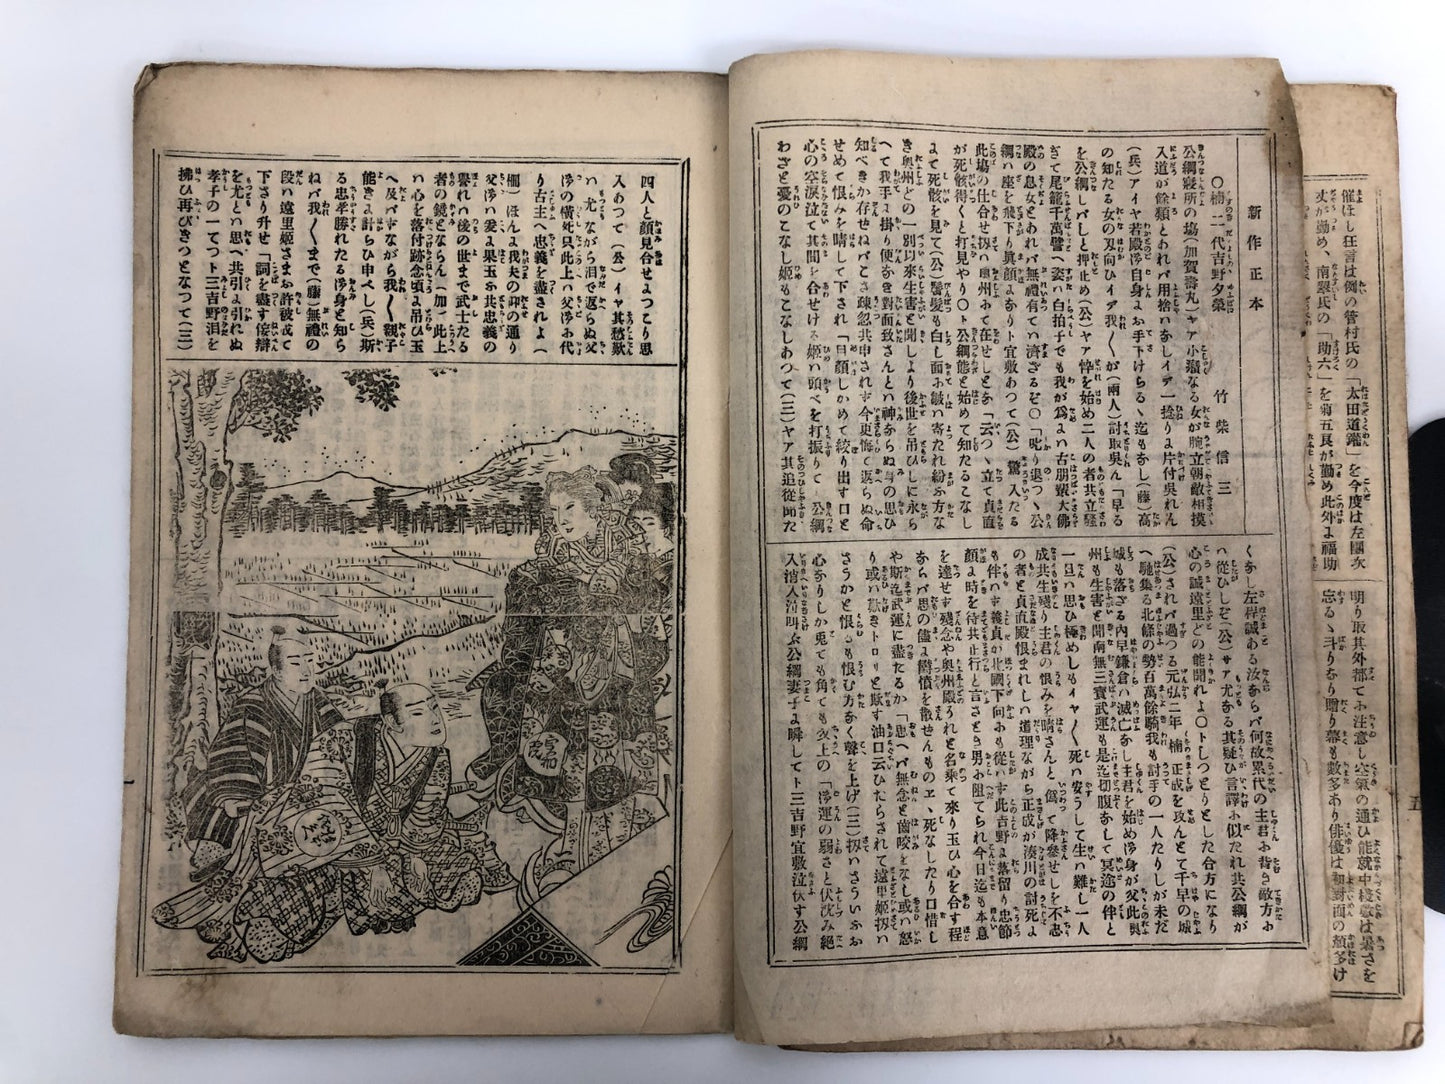 新作正本
○楠二代吉野夕榮
竹柴信三
公綱寢所の塲(加賀壽丸)ヤア小瀧なる女が腕立朝敵相摸
入道が餘類とあれバ用捨ハなしイデ一捻りよ片付呉れん
(兵)アイヤ若殿御自身よお手下けらるゝ迄もなし(藤)高
の知たる女の刄向ひイデ我〳〵が(兩人)討取呉ん「早る
を公綱しバしと押止め(公)ヤア悴を始め二人の者共立騷
ぎて尾籠千萬譬へ姿ハ白拍子でも我が爲よハ古朋輩大佛
殿の息女とあれバ無禮有てハ濟ざるぞ○「叱り退つゝ公
綱ハ座を飛下り眞顔よなり卜宜敷あつて(公)驚入たる
此塲の仕合せ扨ハ奧州お て在せしとな「云つゝ立て貞直
が死骸得くと打見やり○卜公綱態と始めて知たるこなし
よて死骸を見て(公)鬢髪も白し面お皺ハ寄たれ紛ふ方な
き奧州どの一別以來生害と聞しより後世を吊ひしに永ら
へて我手よ掛り便なき對面致さんとハ神ならぬ身の思ひ
知べきか存せねバこさ疎忽共申されず今更悔て返らぬ命
せめて恨みを晴して下され「目顔しかめて絞り出す口と
心の空涙泣て其間を合せける姬ハ頭べを打振りて 公綱
わざと憂のこなし姬もこなしあつて(三)ヤア其追從聞た
くなし左程誠ある汝ならバ何故累代の主君お背き敵方お
ハ從ひしぞ(公)サア尤なる其疑ひ言譯お似たれ共公綱が
心の誠遠里どの能聞れよ○卜しつとりとした合方になり
(公)されバ過つる元弘二年 楠 正成を攻んとて千早の城
へ馳集る北條の勢百萬餘騎我も討手の一人たりしが未だ
城も落ざる內早鎌倉ハ滅亡なし主君を始め御身が父此奧
州も生害と聞南無三寶武運も是迄切腹なして冥途の伴と
一旦ハ思ひ極めしもイヤ〳〵死ハ安うして生ハ難し一人
成共生殘り主君の恨みを晴さんと僞て降參せしを不志
の者と貞直殿恨まれしハ道理ながら正成が湊川の討死よ
も伴ハず義貞が北國下向おも從ハず此吉野よ落留り忠節
顔よ時を待共止行と言さとき男お阻てられ今日迄も本意
を達せず殘念や奧州殿うれと名乘て來り玉ひ心を合す程
ならバ思の儘よ欝憤を散せんものヱ、死なしたり口惜し
や斯迄武運に盡たるか「思へバ無念と齒咬をなし或ハ怒
り或ハ歎きトロリと欺す油口云ひたらされて遠里姬扨ハ
さうかと恨しも恨む方なく聲を上げ(三)扨ハさういふお
心なりしか兎ても角ても父上の「御運の弱さと伏沈み絕
入消入泣叫ぶ公綱妻子よ瞬してト三吉野宜敷泣伏す公綱
四人と顔見合せよつこり思
入あつて(公)イヤ其愁歎
ハ尤ながら泪で返らぬ父
御の橫死只此上ハ父御お代
り古主へ忠義を盡されよ(
柵)ほんよ我夫の仰の通り
父御ハ愛よ果玉ふ共忠義の
譽れハ後の世まで武士たる
者の鏡とならん(加)此上
ハ心を落付跡念頃よ吊ひ玉
へ及バずながら我〳〵親子
能きよ計らひ申べし(兵)斯
る忠孝勝れたる御身と知ら
ねバ我〳〵まで(藤)無禮の
段ハ遠里姬さまお許被成て
下さり升せ「詞を盡す侫辯
を尤とハ思へ共引よ引れぬ
孝子の一てつト三吉野泪を
拂ひ再びきつとなつて(三)
催はし狂言は例の管村氏の「太田道灌」を今度は左團次
丈が勤め、南翠氏の「助六」を菊五良が勤め此外よ福助
明り取其外都てお注意し空氣の通ひ能就中棧敷は暑さを
忘るゝ斗りなり贈り幕も數多あり俳優は初對面の顏多け